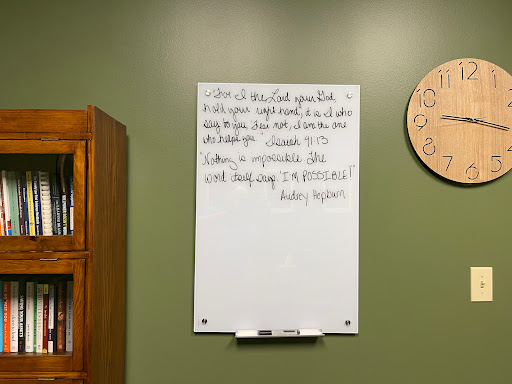 "For I the Lord your God,
hold your right hand, it is I who
say to you, Fear not, I am the one
who helps you." Isaiah 41:13
"Nothing is impossible The
word itself says 'I'M POSSIBLE!'"
Audrey Hepburn
12
1
2
3
4
5
6
7
8
9
10
11